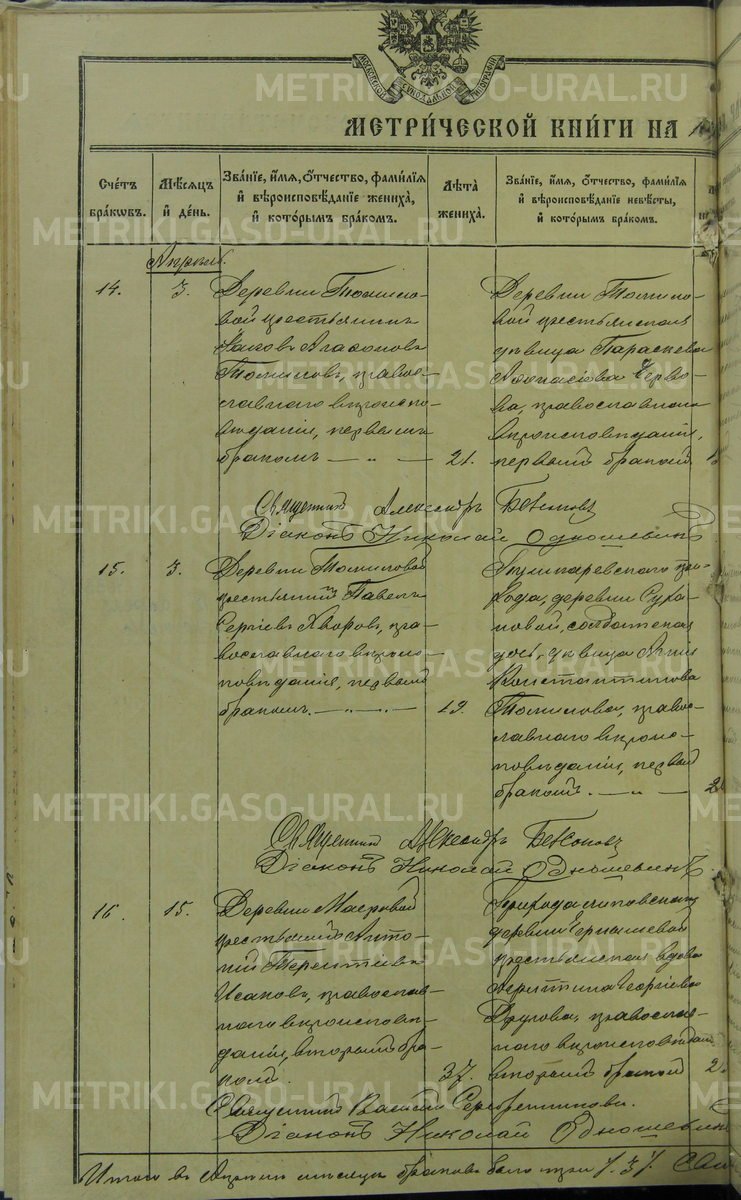 МОСКОВСКОЙ СѴНОДАЛЬНОЙ ТИПОГРАФІИ
METRIKI.GASO-URAL.RU
МЕТРИ́ЧЕСКОЙ КНИ́ГИ НА
Сче́тъ бра́кωвъ.
Мѣ́сѧцъ и҆ де́нь.
Зва́нїе, и҆́мѧ, ѻ҆́тчество, фамилїѧ и҆ вѣроисповѣ́данїе жениха̀, и҆ кото́рымъ бра́комъ.
Лѣ́та жениха̀.
Зва́нїе, и҆́мѧ, ѻ҆́тчество, фамилїѧ и҆ вѣроисповѣ́данїе невѣ́сты, и҆ кото́рымъ бра́комъ.
Апрѣль.
14.
3.
Деревни Томило-
вой крестьянинъ
Іаковъ
Томиловъ, право-
славнаго вѣроиспо-
вѣданія, первымъ
бракомъ — " —
21.
Деревни Томило-
вой крестьянская
дѣвица Параскева
православнаго
вѣроисповѣданія,
первымъ бракомъ
Священникъ Александръ
Діаконъ Николай Одношевинъ
15.
3.
Деревни Томиловой
крестьянинъ Павелъ
Сергіевъ Хворовъ, пра-
вославнаго вѣроис-
повѣданія, первымъ
бракомъ. — " —
19.
Пушкаревскаго при-
хода, деревни Суха-
новой, солдатская
дочь, дѣвица
Константинова
Томилова, право-
славнаго вѣроис-
повѣданія, первымъ
бракомъ. — " —
Священникъ Александръ
Діаконъ Николай Одношевинъ
16.
15.
Деревни
крестьянинъ Анто-
ній Терентьевъ
Исаковъ, православ-
наго вѣроисповѣ-
данія, вторымъ бра-
комъ.
37.
Прихода Липовскаго
деревни
крестьянская вдова
Георгіева
православ-
наго вѣроисповѣданія
вторымъ бракомъ
Священникъ Василій Серебренниковъ.
Діаконъ Николай Одношевинъ
Итого в мѣсяцѣ браковъ было три /3/.